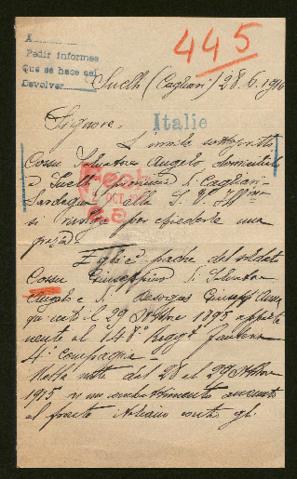 A
Pedir informes
Que se hace del
Devolver
445
Suelli (Cagliari) 28.6.1916
Signore.
Italie
L'umile sottoscritto
Cossu Salvatore Angelo domiciliato
a Suelli provincia di Cagliari
Sardegna alla S. V. Ill
si rivolge per chiederle una
OCT
Egli è padre del soldato
Cossu Giuseppino di Salvatore
Angelo e di Giuseppa Anna
nato il 29 Ottobre 1895 apparte
nente al 148° Regg° Fanteria
4ª compagnia
Nella notte dal 28 al 29 Ottobre
1915 in un combattimento avvenuto
al fronte italiano contro gli